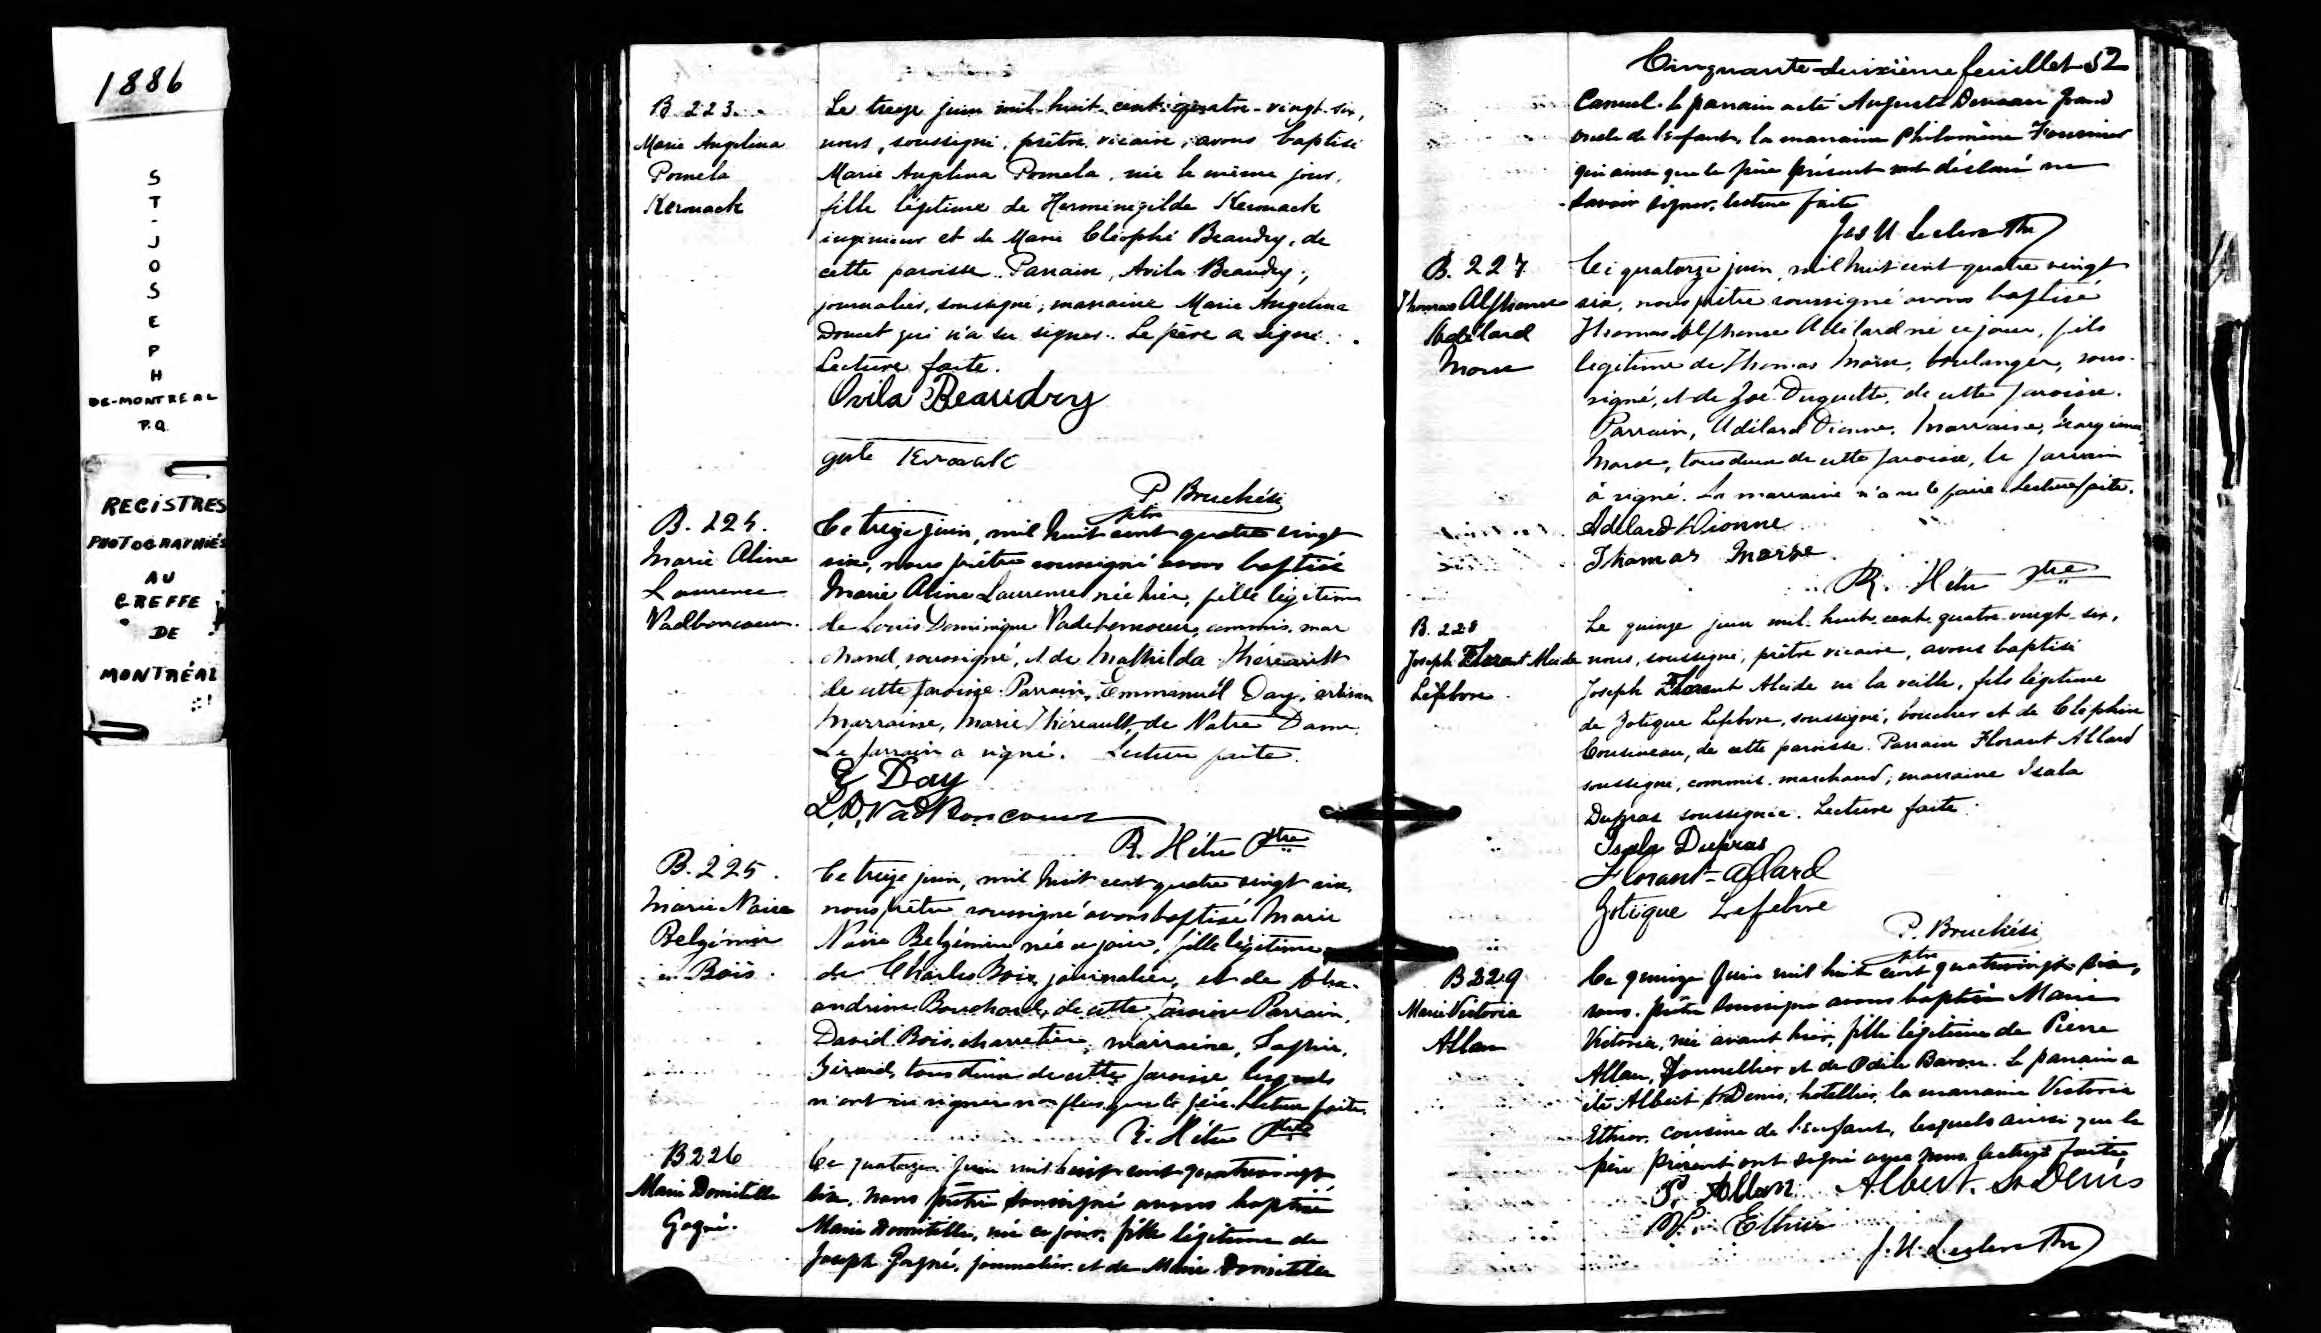 1886
ST-JOSEPH
DE-MONTREAL
P.Q.
REGISTRES
PHOTOGRAPHIÉS
AU
GREFFE
DE
MONTRÉAL
B. 223.
Marie Angelina
Pomela
Kerouack
Le treize juin mil-huit-cent-quatre-vingt-six,
nous, soussigné, prêtre, vicaire, avons baptisé
Marie Angelina Pomela, née le même jour,
fille légitime de Herménégilde Kerouack
ingénieur et de Marie Cléophé Beaudry, de
cette paroisse. Parrain, Avila Beaudry,
journalier, soussigné; marraine Marie Angelina
Doucet qui n'a su signer. Le père a signé.
Lecture faite.
Ovila Beaudry
P. Bruchési
ptre
B. 224.
Marie Aline
Laurence
Vadboncoeur.
Ce treize juin, mil huit cent quatre vingt
six, nous prêtre soussigné avons baptisé
Marie Aline Laurence née hier, fille légitime
de Louis Dominique Vadeboncoeur, commis mar
chand, soussigné, et de Mathilda Thériault
de cette paroisse. Parrain, Emmanuel Day, artisan
Marraine, Marie Thériault, de Notre Dame.
Le parrain a signé. Lecture faite.
E Day
L.D. Vadboncoeur
R. Hétu Ptre
B. 225.
Marie Noire
Belzémire
Bois.
Ce treize juin, mil huit cent quatre vingt six,
nous prêtre soussigné avons baptisé Marie
Belzémire née ce jour, fille légitime
de Charles Bois, journalier, et de Alex-
andrine Bouchard, de cette paroisse Parrain,
David Bois, charretier, marraine, Sophie,
Girard, tous deux de cette paroisse lesquels
n'ont su signer non plus que le père. Lecture faite.
R. Hétu Ptre
B 226
Marie Domitille
Gagné.
Ce quatorze juin mil huit cent quatrevingt
six, nous prêtre soussigné avons baptisé
Marie Domitille, née ce jour, fille légitime de
Joseph Gagné, journalier et de Marie Domitille
Cinquante-deuxième feuillet 52
Camuel. Le parrain a été Auguste grand
oncle de l'enfant, la marraine Philomène Fournier
qui ainsi que le père présent ont déclaré ne
savoir signer, lecture faite
Jos U Leclerc Ptre
B. 227
Thomas Alphonse
Adélard
Morse
Ce quatorze juin, mil huit cent quatre vingt
six, nous prêtre soussigné avons baptisé
Thomas Alphonse Adélard né ce jour, fils
légitime de Thomas Morse, boulanger, sous-
signé, et de Zoé Duquette, de cette paroisse.
Parrain, Adélard Dionne, Marraine, Georgienne
Morse, tous deux de cette paroisse, le parrain
a signé. La marraine n'a su le faire. Lecture faite.
Adelard Dionne
Thomas Morse
R. Hétu Ptre
B. 228
Joseph Florant Alcide
Lefebvre
Le quinze juin mil-huit-cent-quatre-vingt-six,
nous, soussigné, prêtre vicaire, avons baptisé
Joseph Florant Alcide né la veille, fils légitime
de Zotique Lefebvre, soussigné, boucher et de Cléophine
Cousineau, de cette paroisse. Parrain Florant Allard
soussigné, commis-marchand; marraine Isala
Dupras soussignée. Lecture faite.
Isala Dupras
Florant-Allard
Zotique Lefebvre
P. Bruchési
ptre
B 229
Marie Victoria
Allan
Ce quinze juin mil huit cent quatrevingt six,
nous, prêtre soussigné avons baptisé Marie
Victoria, née avant hier, fille légitime de Pierre
Allan, Tonnellier et de Odile Baron. Le parrain a
été Albert St Denis, hotellier, la marraine Victoria
Ethier, cousine de l'enfant, lesquels ainsi que le
père présent ont signé avec nous, lecture faite
P. Allan Albert St Denis
V. Ethier
J. U. Leclerc Ptre